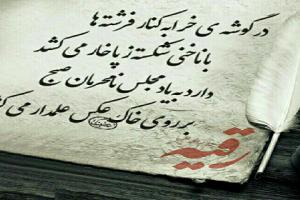 در گوشه ی خرابه کنار فرشته ها
با ناخنی شکسته ز پا خار می کشد
دارد به یاد مجلس نامحرمان صبح
بر روی خاک عکس علمدار می کشد
رقیه